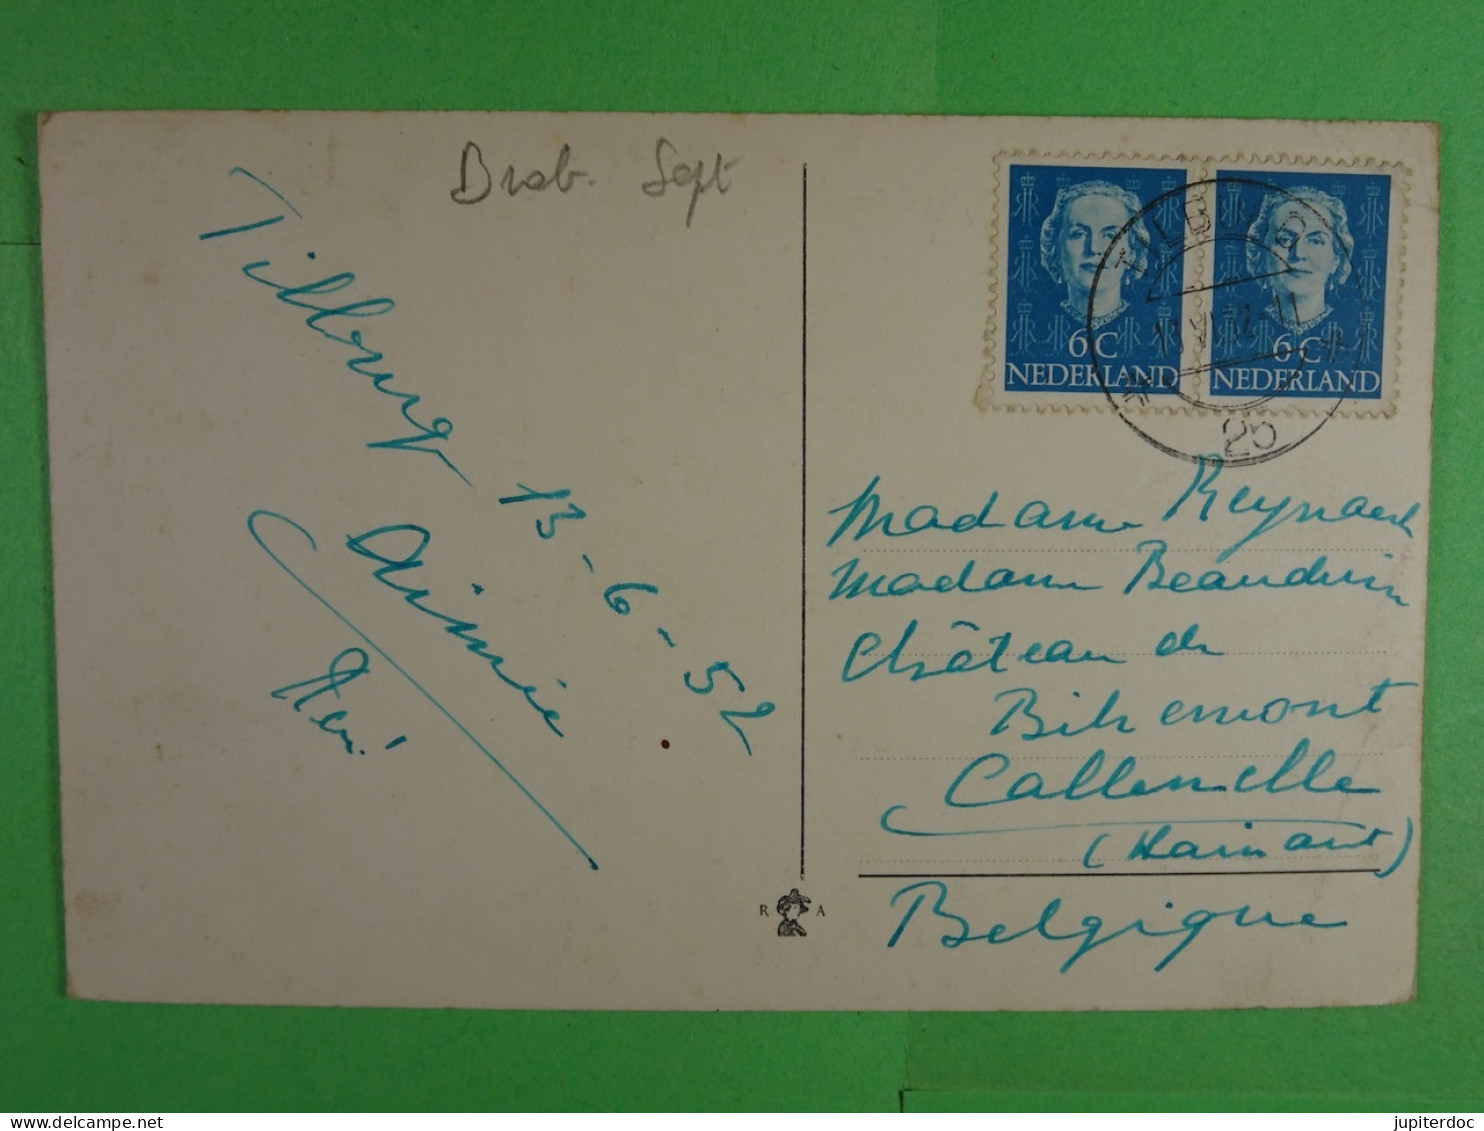 Brab. Sept
Tilburg 13-6-52
Aimée
6C
NEDERLAND
6C
NEDERLAND
TILBURG
13.VI.52-11
25
Madame Reynaert
Madame Beauduin
Château de
Bihemont
Callenelle
(Hainaut)
Belgique
R A
jupiterdoc